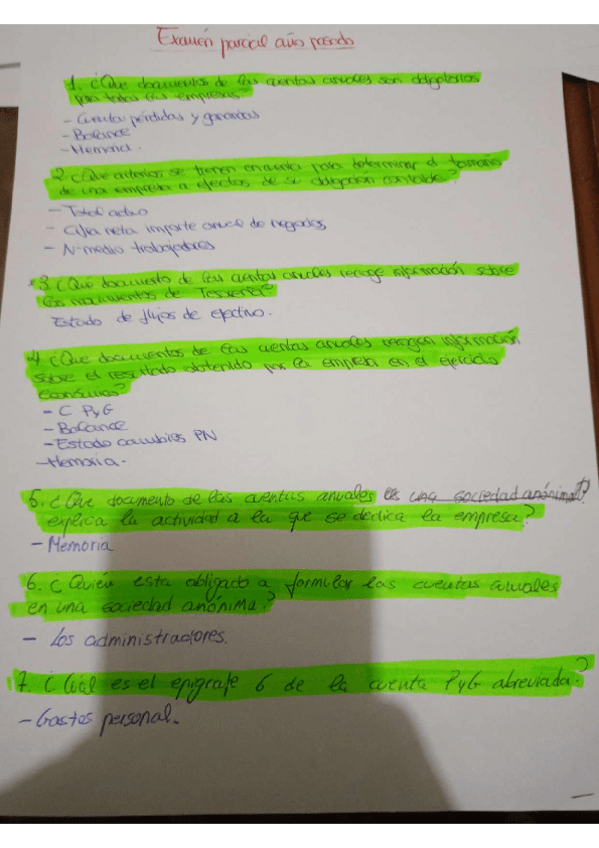 Examen parcial año pasado
1. ¿Que documentos de las cuentas anuales son obligatorios
para todas las empresas?
- Cuenta pérdidas y ganancias
- Balance
- Memoria.
2. ¿Que criterios se tienen en cuenta para determinar el tamaño
de una empresa a efectos de su obligación contable?
- Total activo
- Cifra neta importe anual de negocios
- Nº medio trabajadores
3. ¿Que documento de las cuentas anuales recoge información sobre
los movimientos de Tesorería?
Estado de flujos de efectivo.
4. ¿Que documentos de las cuentas anuales recogen información
sobre el resultado obtenido por la empresa en el ejercicio
económico?
- C PyG
- Balance
- Estado cambios PN
- Memoria.
5. ¿Que documento de las cuentas anuales es una sociedad anónima?
explica la actividad a la que se dedica la empresa?
- Memoria
6. ¿Quién esta obligado a formular las cuentas anuales
en una sociedad anónima?
- Los administradores.
7. ¿Cuál es el epígrafe 6 de la cuenta PyG abreviada?
- Gastos personal.